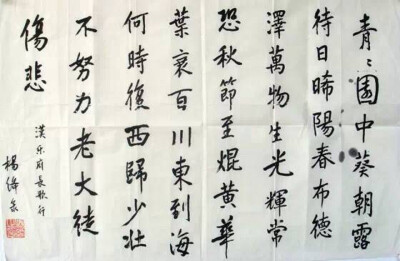 青〻園中葵朝露
待日晞陽春布德
澤萬物生光輝常
恐秋節至焜黃華
葉衰百川東到海
何時復西歸少壯
不努力老大徒
傷悲
漢乐府長歌行
楊